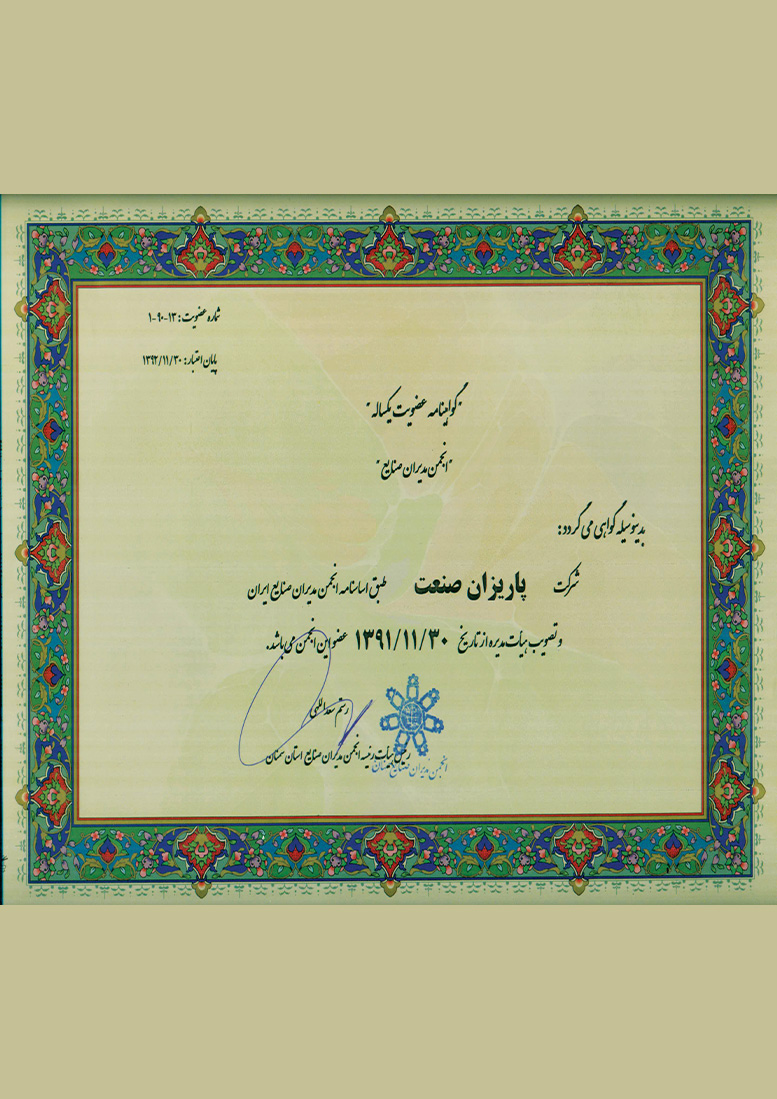 شماره عضویت: ۱۳-۹۰-۱
پایان اعتبار: ۱۳۹۲/۱۱/۳۰
"گواهینامه عضویت یکساله"
"انجمن مدیران صنایع"
بدینوسیله گواهی می گردد:
شرکت پاریزان صنعت طبق اساسنامه انجمن مدیران صنایع ایران
و تصویب هیأت مدیره از تاریخ ۱۳۹۱/۱۱/۳۰ عضو این انجمن می باشد.
رستم سعدالهی
رئیس هیأت رئیسه انجمن مدیران صنایع استان سمنان
انجمن مدیران صنایع سمنان